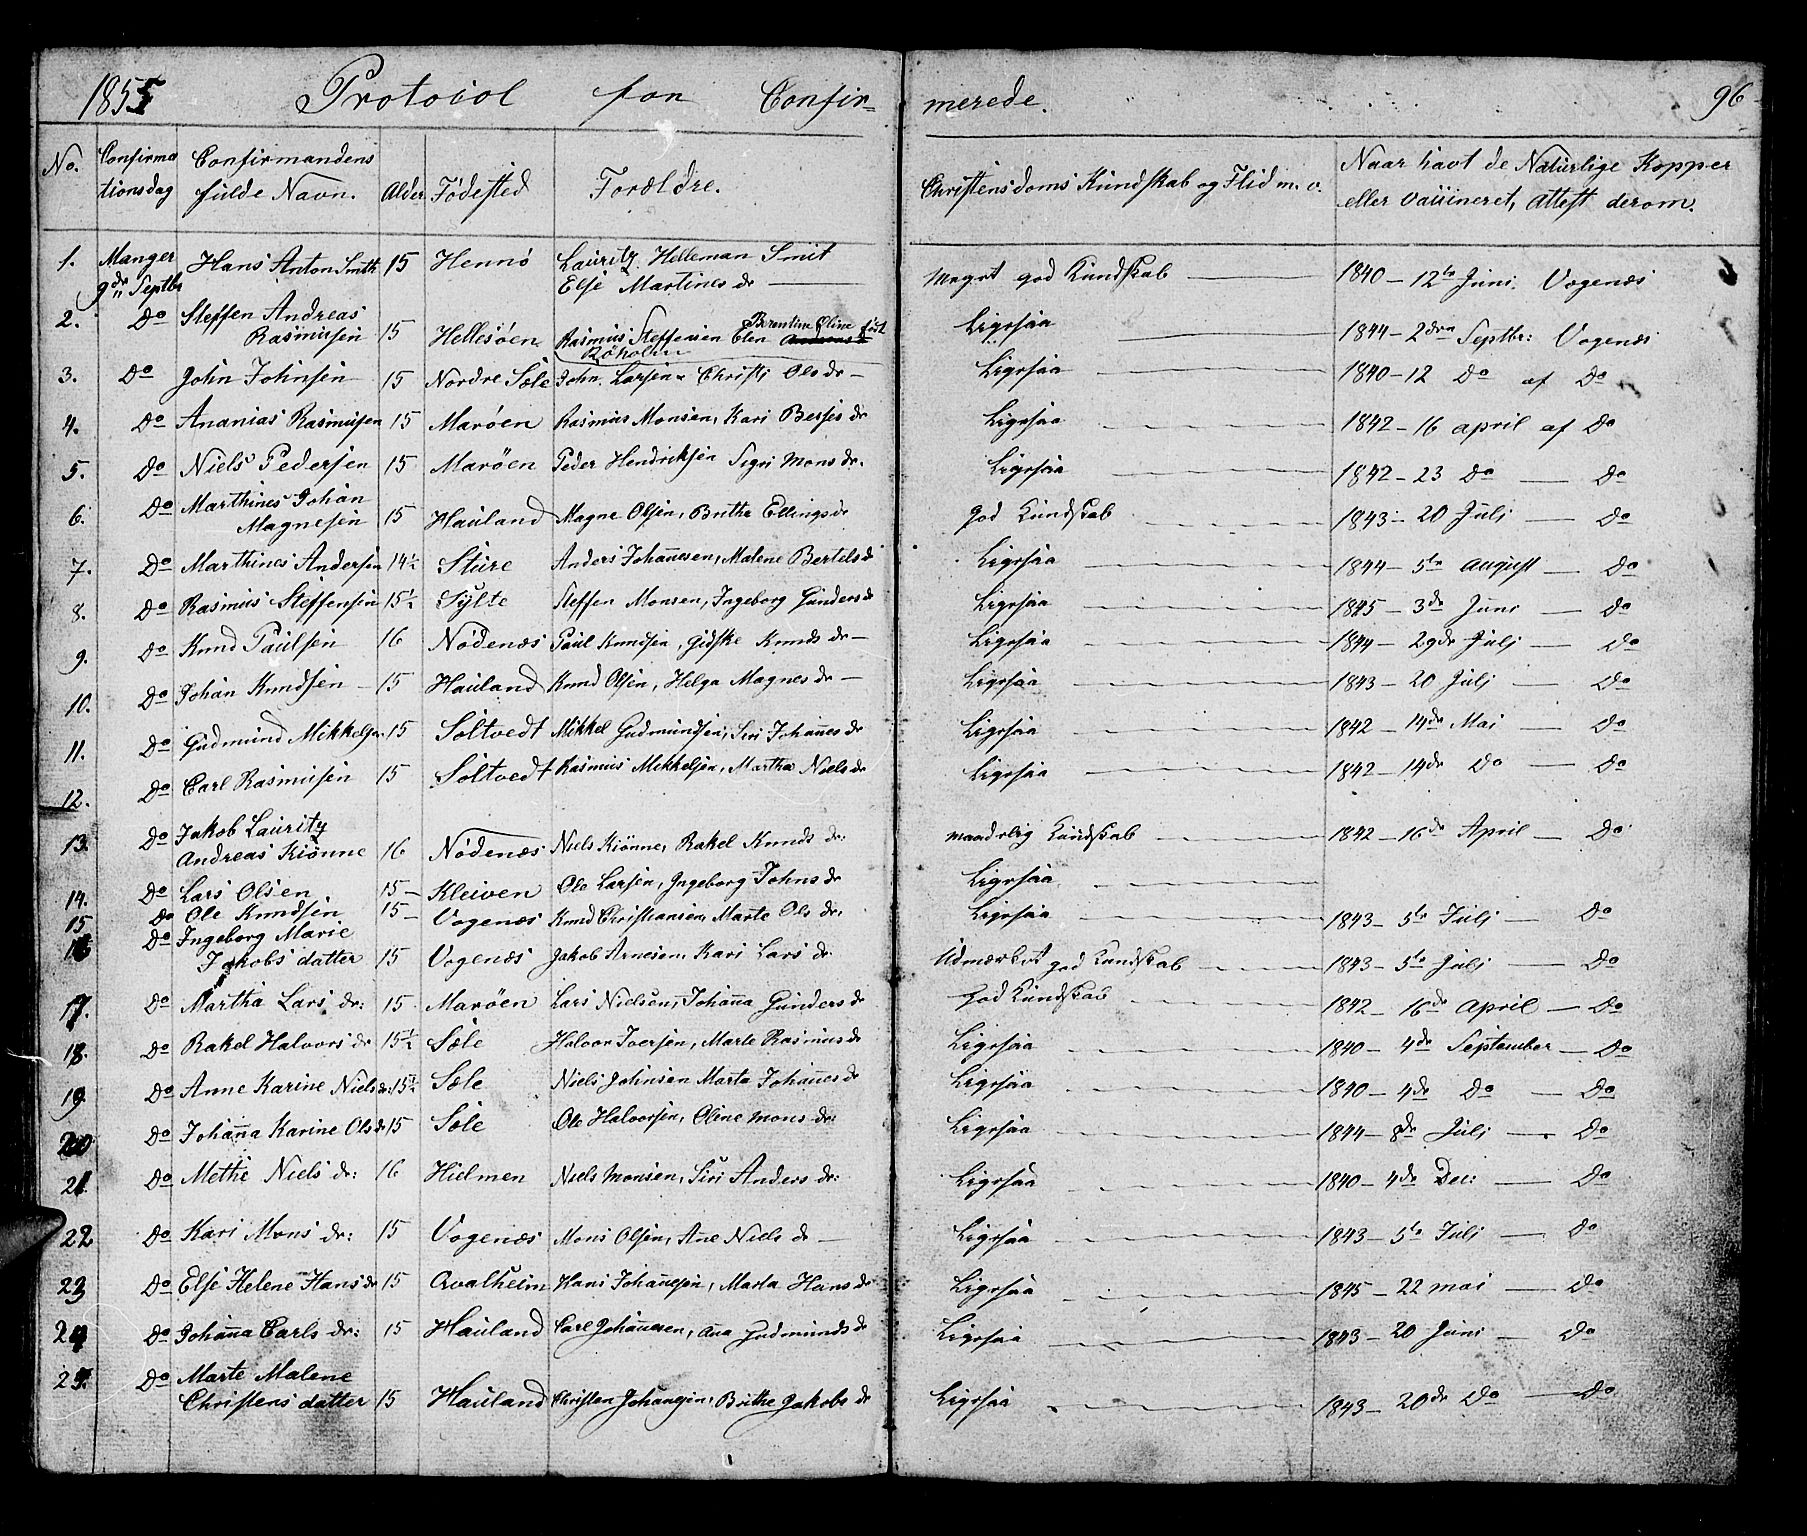 1855 Protocol for Confir- merede. 96
No. Confirma Confirmandens Alder Fødested Forældre. Christensdoms Kundskab og Flid m. v. Naar havt de Naturlige Kopper
tionsdag fulde Navn. eller vaccineret, attest derom.
1. Manger Hans Anton Smith 15 Hennø Lauritz Helleman Smit Meget god Kundskab 1840 - 12te Juni. Vogenæs
9de Septbr Else Martines dr
2. Do Steffen Andreas Berentine Oline født
Rasmusen 15 Hellesøen Rasmus Steffensen Elen Ligesaa 1844 - 2den Septbr: Vogenæs
Røholm
3. Do John Johnsen 15 Nordre Sæle John Larsen Christi Ols dr - Ligesaa 1840 - 12 Do af Do
4. Do Ananias Rasmusen 15 Marøen Rasmus Monsen, Kari Berses dr Ligesaa 1842 - 16 april af Do
5. Do Niels Pedersen 15 Marøen Peder Hendriksen Sigri Mons dr. Ligesaa 1842 - 23 Do - Do
6. Do Marthines Johan
Magnesen 15 Hauland Magne Olsen, Brithe Ellings dr God Kundskab 1843 - 20 Juli - Do
7. Do Marthines Andersen 14½ Sture Anders Johannesen, Malene Bertels dr Ligesaa 1844 - 5te august - Do
8. Do Rasmus Steffensen 15½ Sylte Steffen Monsen, Ingeborg Gunders dr Ligesaa 1845 - 3de Juni - Do
9. Do Knud Paulsen 16 Nødenæs Paul Knudsen, Gidske Knuds dr - Ligesaa 1844 - 29de Juli - Do
10. Do Johan Knudsen - 15 Hauland Knud Olsen, Helga Magnes dr - Ligesaa 1843 - 20 Juli - Do
11. Do Gudmund Mikkelsen 15 Soltvedt Mikkel Gudmundsen, Siri Johannes dr Ligesaa 1842 - 14de Mai - Do
12. Do Carl Rasmusen 15 Soltvedt Rasmus Mikkelsen, Martha Niels dr Ligesaa 1842 - 14de Do - Do
13. Do Jakob Lauritz
Andreas Kiønne 16 Nødenæs Niels Kiønne, Rakel Knuds dr: maadelig Kundskab 1842 - 16de April - Do
14. Do Lars Olsen 15 - Kleiven Ole Larsen, Ingeborg Johns dr Ligesaa
15 Do Ole Knudsen 15 - Vogenæs Knud Christiansen, Marte Ols dr: Ligesaa 1843 - 5te Juli - Do
16 Do Ingeborg Marie
Jakobs datter 15 Vogenæs Jakob Arnesen, Kari Lars dr Udmærket god Kundskab 1843 - 5te Juli - Do
17. Do Martha Lars dr: 15 Marøen Lars Nielsen, Johanna Gunders dr God Kundskab 1842 - 16de April - Do
18. Do Rakel Halvors dr 15½ Sæle Halvor Iversen, Marte Rasmus dr Ligesaa 1840 - 4de September - Do
19. Do Anne Karine Niels dr: 15½ Sæle Niels Johnsen Marta Johannes dr Ligesaa 1840 - 4de Do - Do
20 Do Johanna Karine Ols dr 15 Sæle Ole Halvorsen, Oline Mons dr: Ligesaa 1844 - 8de Juli - Do
21. Do Methe Niels dr: 16 Hielmen Niels Monsen, Siri Anders dr: Ligesaa 1840 - 4de Dec: - Do
22 Do Kari Mons dr: 15 Vogenæs Mons Olsen, Ane Niels dr - Ligesaa 1843 - 5te Juli - Do
23 Do Else Helene Hans dr 15 Qvalheim Hans Johannesen, Marta Hans dr Ligesaa 1845 - 22 mai - Do
24 Do Johanna Carls dr: 15 Hauland Carl Johannesen, Ana Gudmunds dr Ligesaa 1843 - 20 Juni - Do
25. Do Marte Malene
Christens datter 15 Hauland Christen Johannesen, Brithe Jakobs dr Ligesaa 1843 - 20de Do - Do